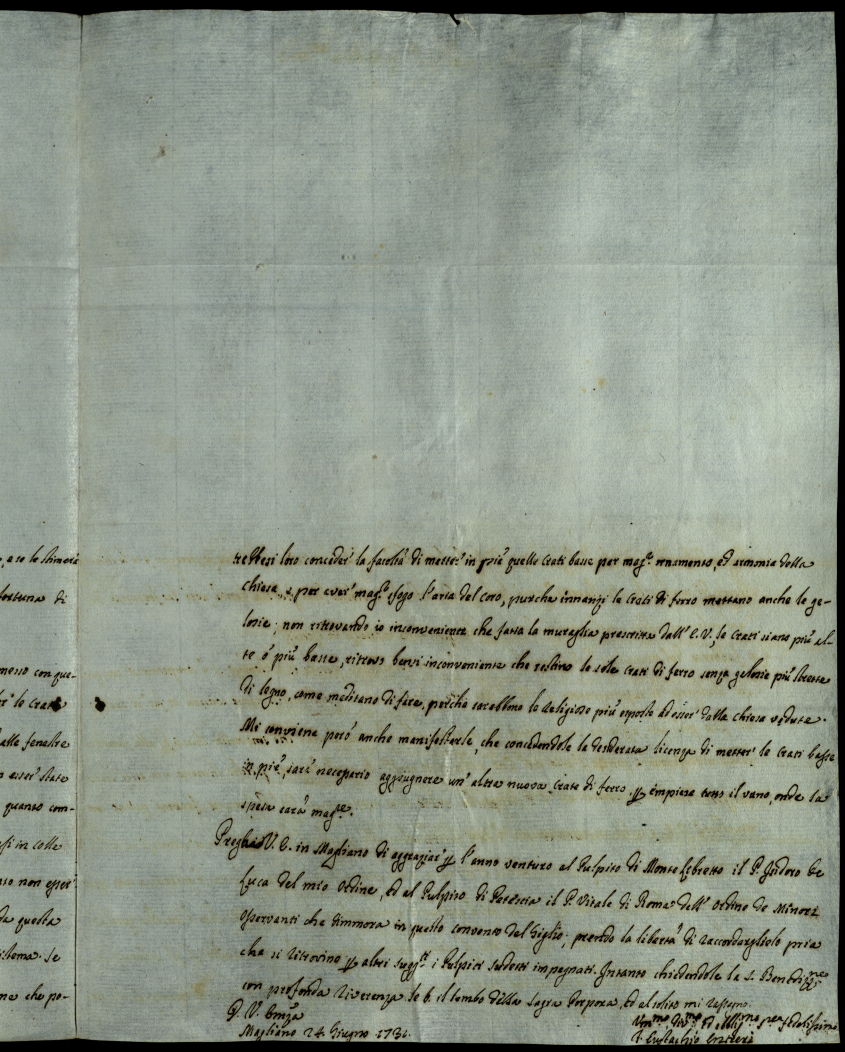 , e se lo stimerà
fortuna di
messo con que-
le Crati
alle fenestre
esser' state
quanto com-
si in colle
non esser'
da questa
sistema. Se
che po-
loro conceder' la facoltà di metter' in più quelle Crati basse per mag.r ornamento, ed armonia della
chiesa, e per aver' mag.r sfogo l'aria del Coro, purche innanzi le Crati di ferro mettano anche le ge-
losie; non ritrovando io inconveniente che fatta la muraglia prescritta dall' E.V., le Crati siano più al-
te ò più basse, ritrovo bensì inconveniente che restino le sole Crati di ferro senza gelosie più strette
di legno, come meditano di fare, perche sarebbono le Religiose più esposte ad esser' dalla chiesa vedute.
Mi conviene però anche manifestarle, che concedendole la desiderata licenza di metter' le Crati basse
in più, sarà necessario aggiugnere un' altra nuova Crate di ferro per empiere tutto il vano, onde la
spesa sarà mag.re.
Preghai V. E. in Magliano di aggraziar' per l'anno venturo al Pulpito di Montelibretto il P. Isidoro
Luca del mio Ordine, ed al Pulpito di il P. Vitale di Roma dell' Ordine de Minori
Osservanti che dimora in questo convento del Giglio; prendo la libertà di raccordarglielo pria
che si ritrovino per altri sogg.tti i Pulpiti sudetti impegnati. Intanto chiedendole la S. Bened.ne
con profonda riverenza le b. il lembo della Sagra Porpora, ed al solito mi rassegno.
D. V. Em.za
Magliano 24. Giugno 1731.
Um.mo Div.mo ed Obl.mo fedelissimo
F. Eustachio